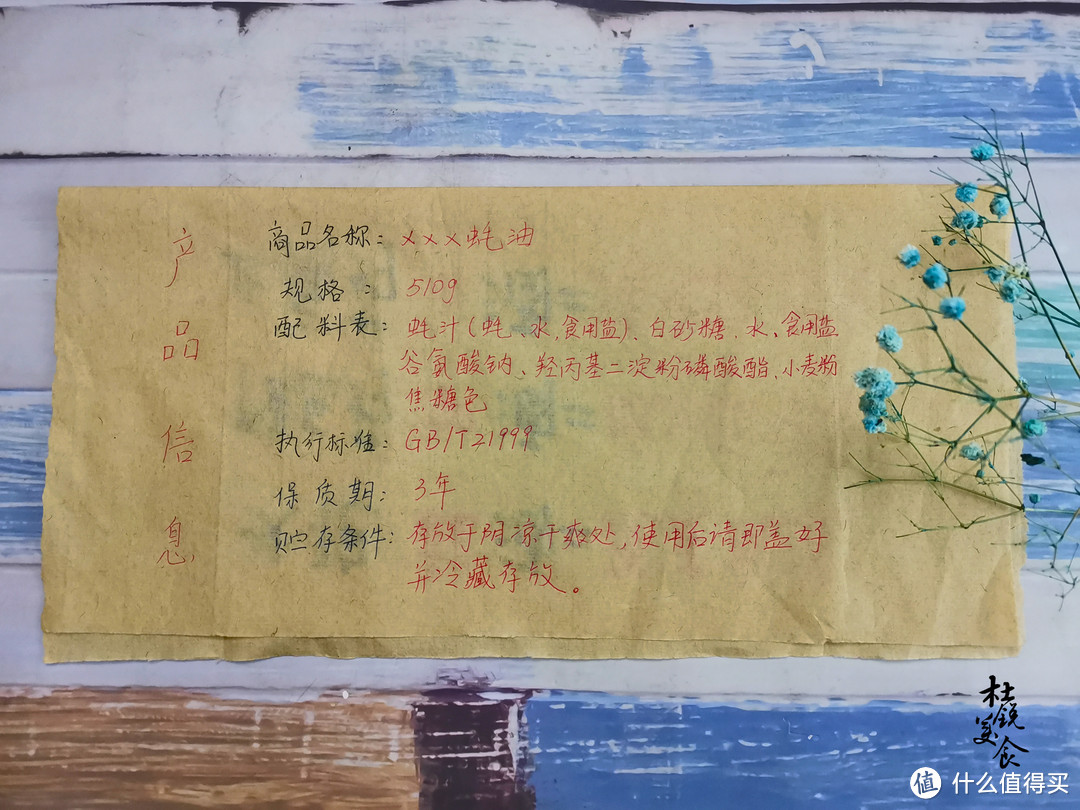 产品信息
商品名称：×××蚝油
规格：510g
配料表：蚝汁(蚝、水,食用盐)、白砂糖、水、食用盐
谷氨酸钠、羟丙基二淀粉磷酸酯、小麦粉
焦糖色
执行标准：GB/T21999
保质期：3年
贮存条件：存放于阴凉干爽处,使用后请即盖好
并冷藏存放。
杜锐美食
值 什么值得买